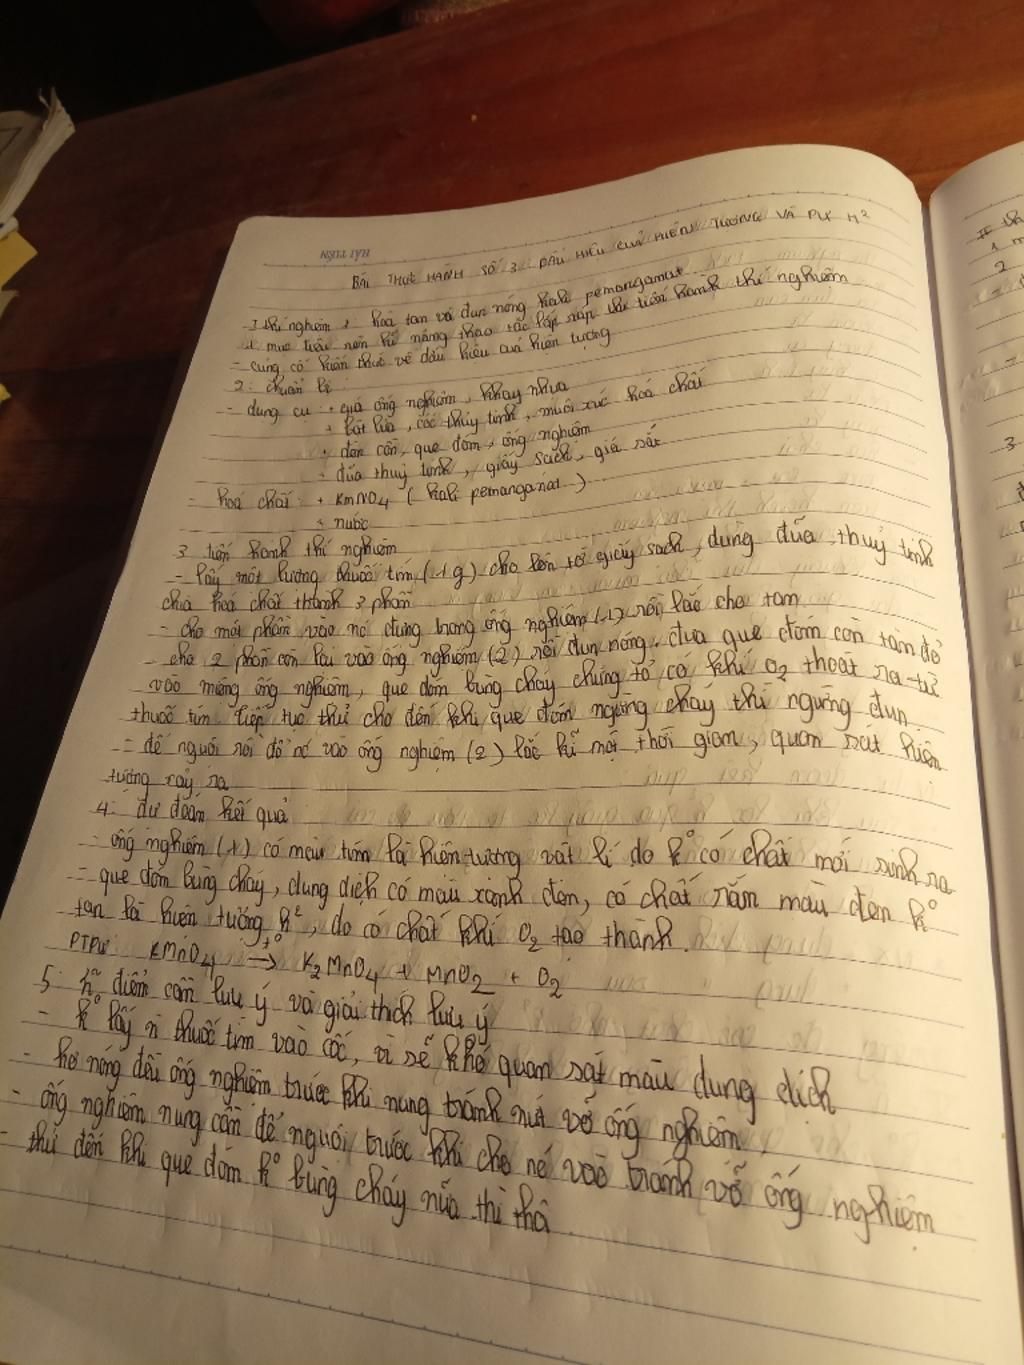 HẢI TIẾN
BÀI THỰC HÀNH SỐ 3 DẤU HIỆU CỦA HIỆN TƯỢNG VÀ PƯ H²
I thí nghiệm 1: hoà tan và đun nóng kali pemangamat
1 mục tiêu rèn kĩ năng thao tác lắp ráp thi tiến hành thí nghiệm
- cũng có kiến thức về dấu hiệu của hiện tượng
2: chuẩn bị
- dụng cụ: + giá ống nghiệm, khay nhựa
+ bật lửa, cốc thuỷ tinh, muôi xúc hoá chất
+ đèn cồn, que đóm, ống nghiệm
- đũa thuỷ tinh, giấy sạch, giá sắt
- hoá chất: + KmNO4 (kali pemanganat)
+ nước
3 tiến hành thí nghiệm
- lấy một lượng thuốc tím (1g) cho lên tờ giấy sạch, dùng đũa thuỷ tinh
chia hoá chất thành 3 phần
- cho một phần vào nc đựng trong ống nghiệm (1) rồi lắc cho tan
- cho 2 phần còn lại vào ống nghiệm (2) rồi đun nóng. đưa que đóm còn tàn đỏ
vào miệng ống nghiệm, que đóm bùng cháy chứng tỏ có khí O2 thoát ra từ
thuốc tím tiếp tục thử cho đến khi que đóm ngừng cháy thì ngừng đun
- để nguội rồi đổ nc vào ống nghiệm (2) lắc kĩ một thời gian, quan sát hiện
tượng xảy ra
4: dự đoán kết quả
- ống nghiệm (1) có màu tím là hiện tượng vật lí do k° có chất mới sinh ra
- que đóm bùng cháy, dung dịch có màu xanh đen, có chất rắn màu đen k°
tan là hiện tượng h², do có chất khí O2 tạo thành.
PTPƯ KMnO4 t°→ K2MnO4 + MnO2 + O2
5: ~ điểm cần lưu ý và giải thích lưu ý
- k° lấy n thuốc tím vào cốc, vì sẽ khó quan sát màu dung dịch
- hơ nóng đều ống nghiệm trước khi nung tránh nứt vỡ ống nghiệm.
- ống nghiệm nung cần để nguội trước khi cho nc vào tránh vỡ ống nghiệm
- thử đến khi que đóm k° bùng cháy nữa thì thôi